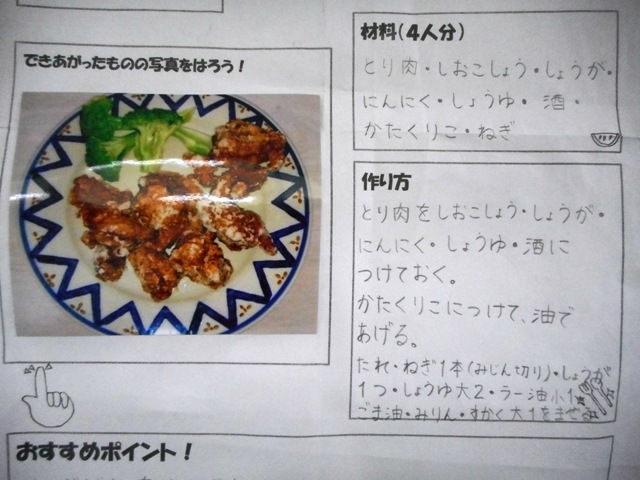 できあがったものの写真をはろう！
材料（４人分）
とり肉・しおこしょう・しょうが・
にんにく・しょうゆ・酒・
かたくりこ・ねぎ
作り方
とり肉をしおこしょう・しょうが・
にんにく・しょうゆ・酒に
つけておく。
かたくりこにつけて、油で
あげる。
たれ・ねぎ1本(みじん切り)・しょうが
1つ・しょうゆ大2・ラー油小1
ごま油・みりん・すかく大1をまぜる
おすすめポイント！